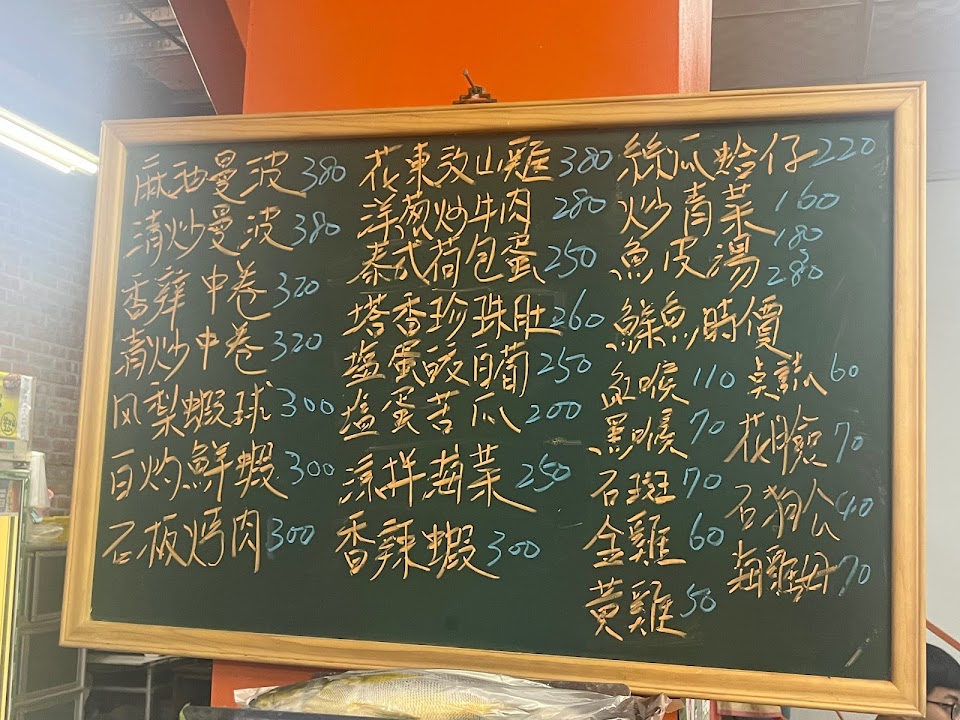 麻油曼波 380
清炒曼波 380
香辣中卷 320
清炒中卷 320
风梨蝦球 300
白灼鮮蝦 300
石板烤肉 300
花東放山雞 380
洋葱炒牛肉 280
泰式荷包蛋 250
塔香珍珠肚 260
塩蛋皎白荀 250
塩蛋苦瓜 200
涼拌海菜 250
香辣蝦 300
絲瓜蛤仔 220
炒青菜 160
魚皮湯 180
280
鮮魚時價
紅喉 110
黑喉 70
石斑 70
金雞 60
黃雞 50
60
花臉 70
石狗公 40
海雞母 70